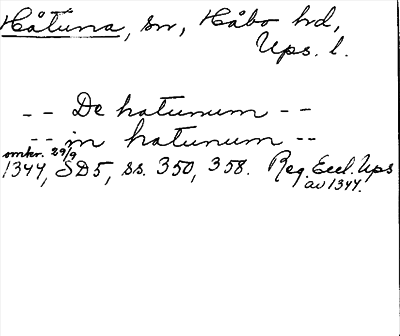 Håtuna, sn, Håbo hd,
Ups. l.
-- De hatunum --
-- in hatunum --
omkr. 29/9
1344, SD5, ss. 350, 358. Reg. Eccl. Ups
av 1344.